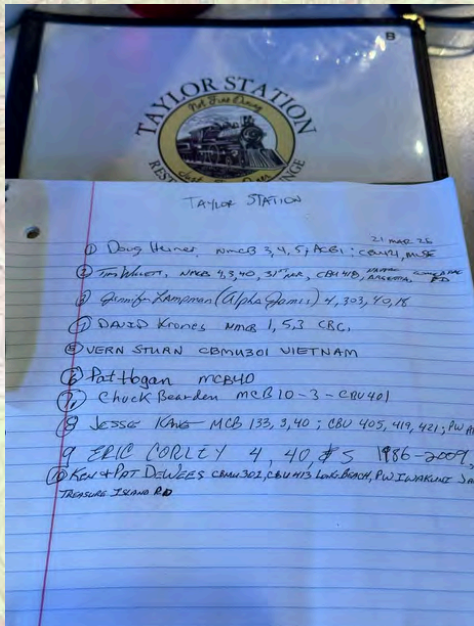 B
TAYLOR STATION
Not Fine Dining
TAYLOR STATION
21 MAR 26
① Doug Heiner NMCB 3, 4, 5, ACB1; CBMU
② Tim NMCB 4, 3, 40, 31st NCR, CBU 418,
③ Jennifer Lampman (Alpha James) 4, 303, 40, 18
④ DAVID Krones NMCB 1, 5, 3 CBC,
⑤ VERN CBMU301 VIETNAM
⑥ Pat Hogan MCB40
⑦ Chuck Bearden MCB 10-3-CBU401
8 JESSE MCB 133, 3, 40; CBU 405, 419, 421; PW
9 ERIC CORLEY 4, 40, & 5 1986-2009
⑩ KEN & PAT DEWEES CBMU 302, CBU 413 LONG BEACH, PW IWAKUNI
TREASURE ISLAND